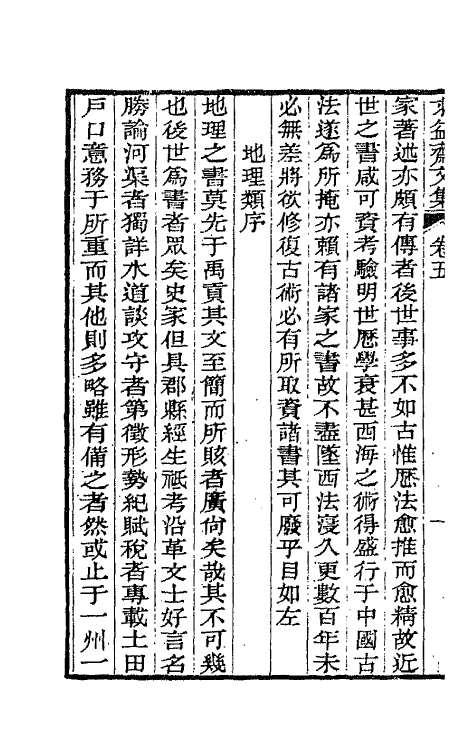 求益齋文集 卷五
家著述亦頗有傳者後世事多不如古惟厯法愈推而愈精故近
世之書咸可資考驗明世厯學衰甚西海之術得盛行于中國古
法遂爲所掩亦賴有諸家之書故不盡墜西法寖久更數百年未
必無差將欲修復古術必有所取資諸書其可廢乎目如左
地理類序
地理之書莫先于禹貢其文至簡而所賅者廣尙矣哉其不可幾
也後世爲書者眾矣史家但具郡縣經生祇考沿革文士好言名
勝論河渠者獨詳水道談攻守者第徵形勢紀賦稅者專載土田
戶口意務于所重而其他則多略雖有備之者然或止于一州一